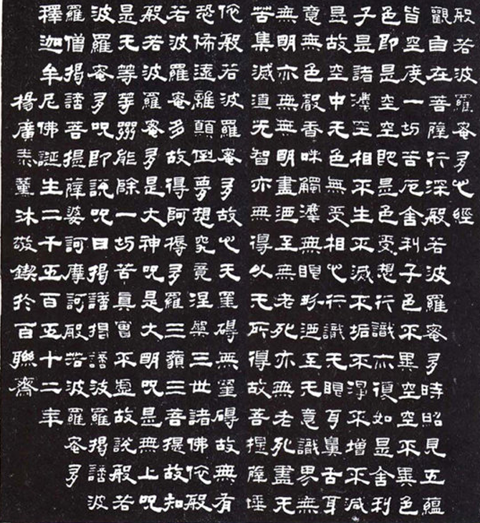 般若波羅蜜多心經
觀自在菩薩行深般若波羅蜜多時昭見五蘊
皆空度一切苦厄舍利子色不異空空不異色
色即是空空即是色受想行識亦復如是舍利
子是諸灋空相不生不滅不垢不淨不增不減
是故空中无色無受想行識无眼耳鼻舌身
意無色聲香味觸灋無眼界迺至无意識界无
無明亦無無明盡迺至無老死亦無老死盡無
苦集滅道无智亦無得以无所得故菩提薩埵
依般若波羅蜜多故心无罣礙無罣礙故無有
恐怖遠離顛倒夢想究竟涅槃三世諸佛依般
若波羅蜜多故得阿耨多羅三藐三菩提故知
般若波羅蜜多是大神呪是大明呪是無上呪
是无等等呪能除一切苦真實不虛故說般若
波羅蜜多呪即說呪曰揭諦揭諦波羅揭諦波
羅僧揭諦菩提薩婆訶摩訶般若波羅蜜多
釋迦牟尼佛誕生二千五百五十二年
楊廣泰薰沐敬鍥於百聯齋